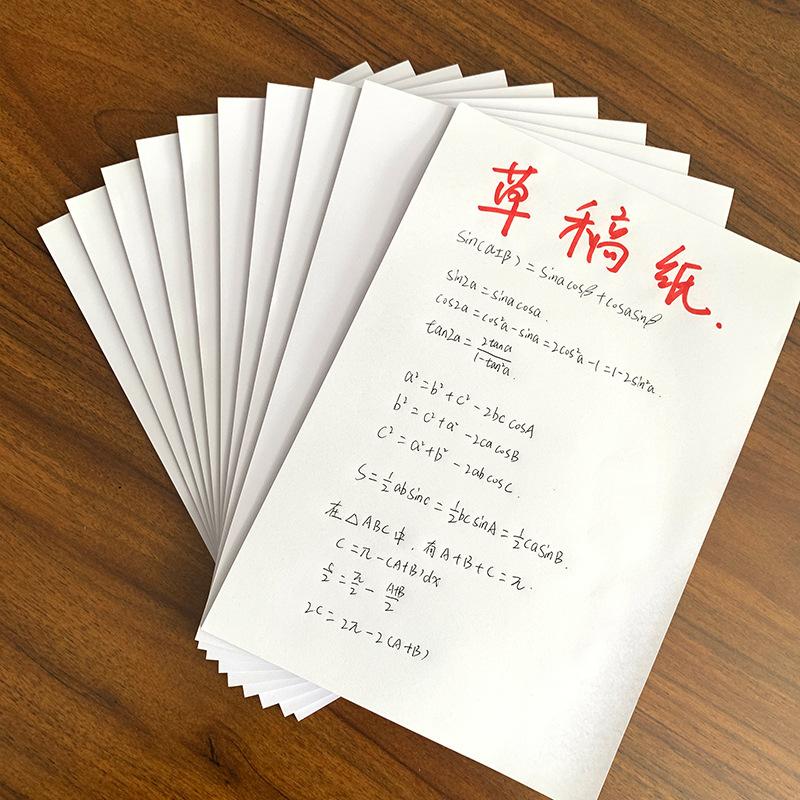 草稿纸.
sin(a±β)=sinacosβ+cosasinβ
sin2a=sinacosa.
cos2a=cos²a-sina=2cos²a-1=1-2sin²a.
tan2a=\frac{2tana}{1-tan²a}.
a²=b²+c²-2bc cosA
b²=c²+a²-2ca cosB
c²=a²+b²-2ab cosC.
S=\frac{1}{2}absinc=\frac{1}{2}bcsinA=\frac{1}{2}casinB.
在△ABC中.有A+B+C=π.
C=π-(A+B)dx
\frac{c}{2}=\frac{π}{2}-\frac{A+B}{2}
2C=2π-2(A+B)